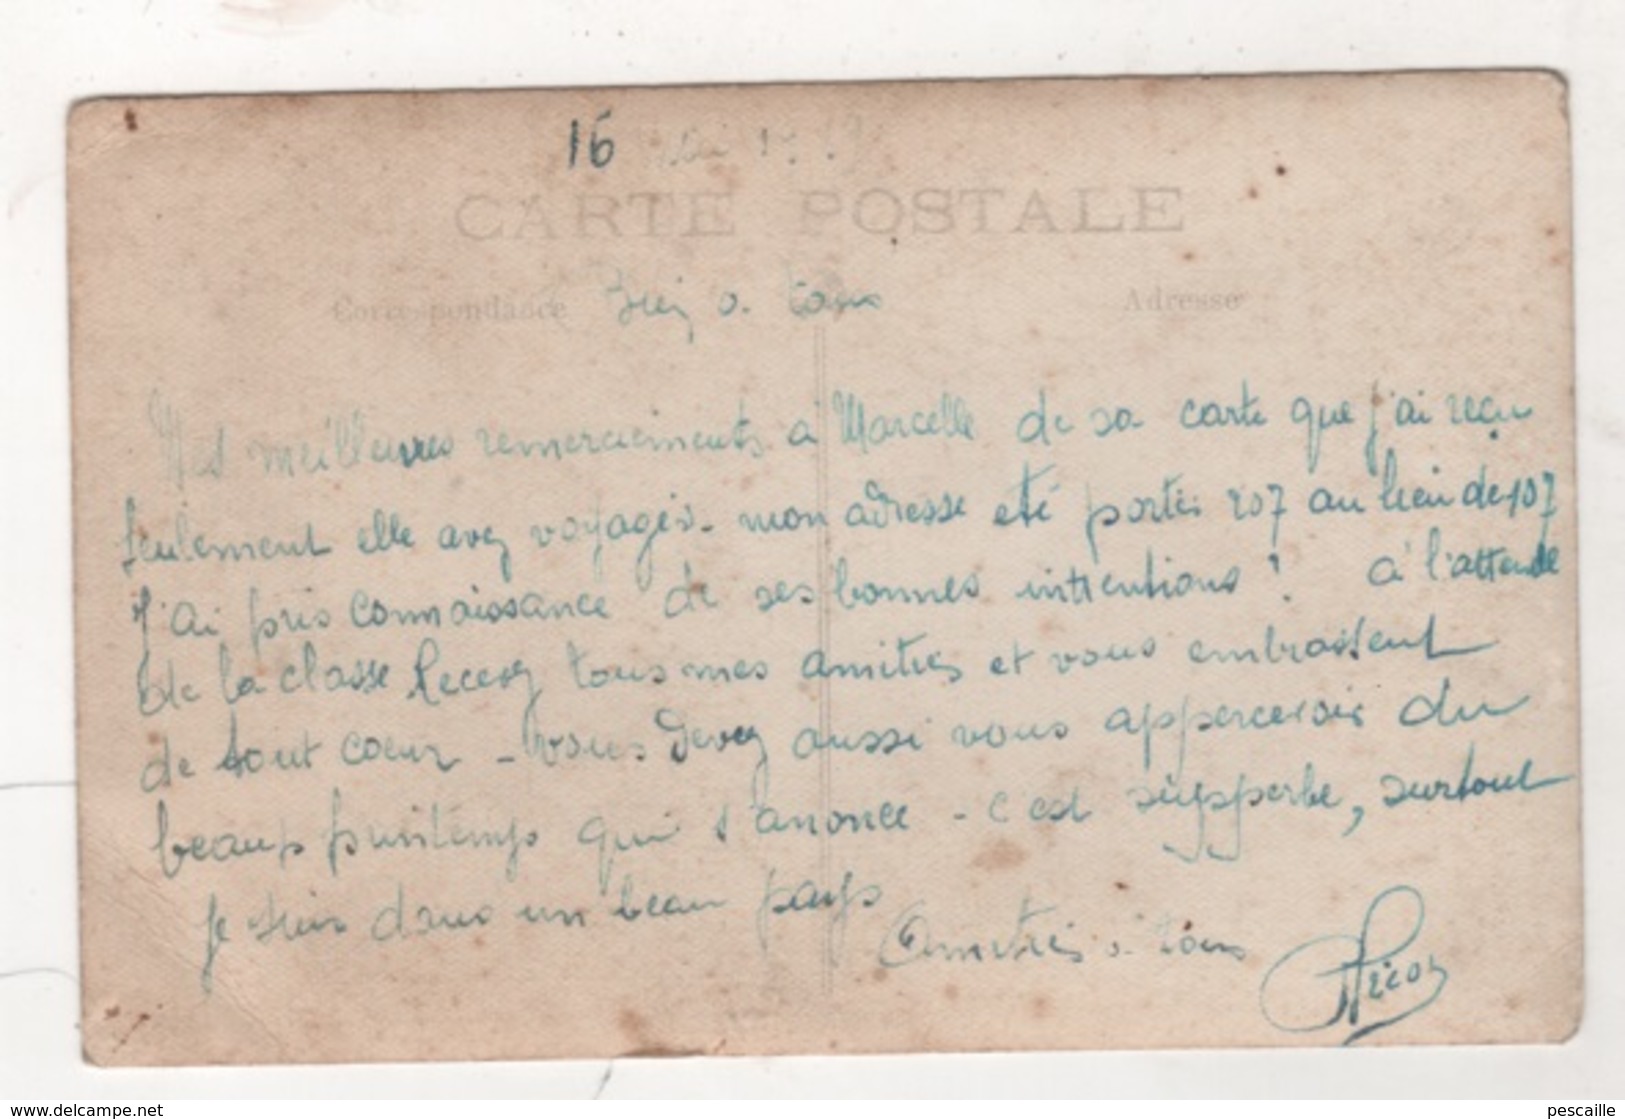 16 Mai
CARTE POSTALE
Correspondance
Adresse
à tous
Mes meilleures remerciements à Marcelle de sa carte que j'ai reçu
seulement elle avez voyagés - mon adresse eté portés 207 au lieu de 107
J'ai pris connaissance de ses bonnes intientions ! à l'attende
de la classe Recevez tous mes amitiés et vous embrassent
de tout coeur - vous devez aussi vous appercevoir du
beaup printemps qui s'anonce - c'est supperbe, surtout
je suis dans un beau pays
Amitiés à tous
www.delcampe.net
pescaille